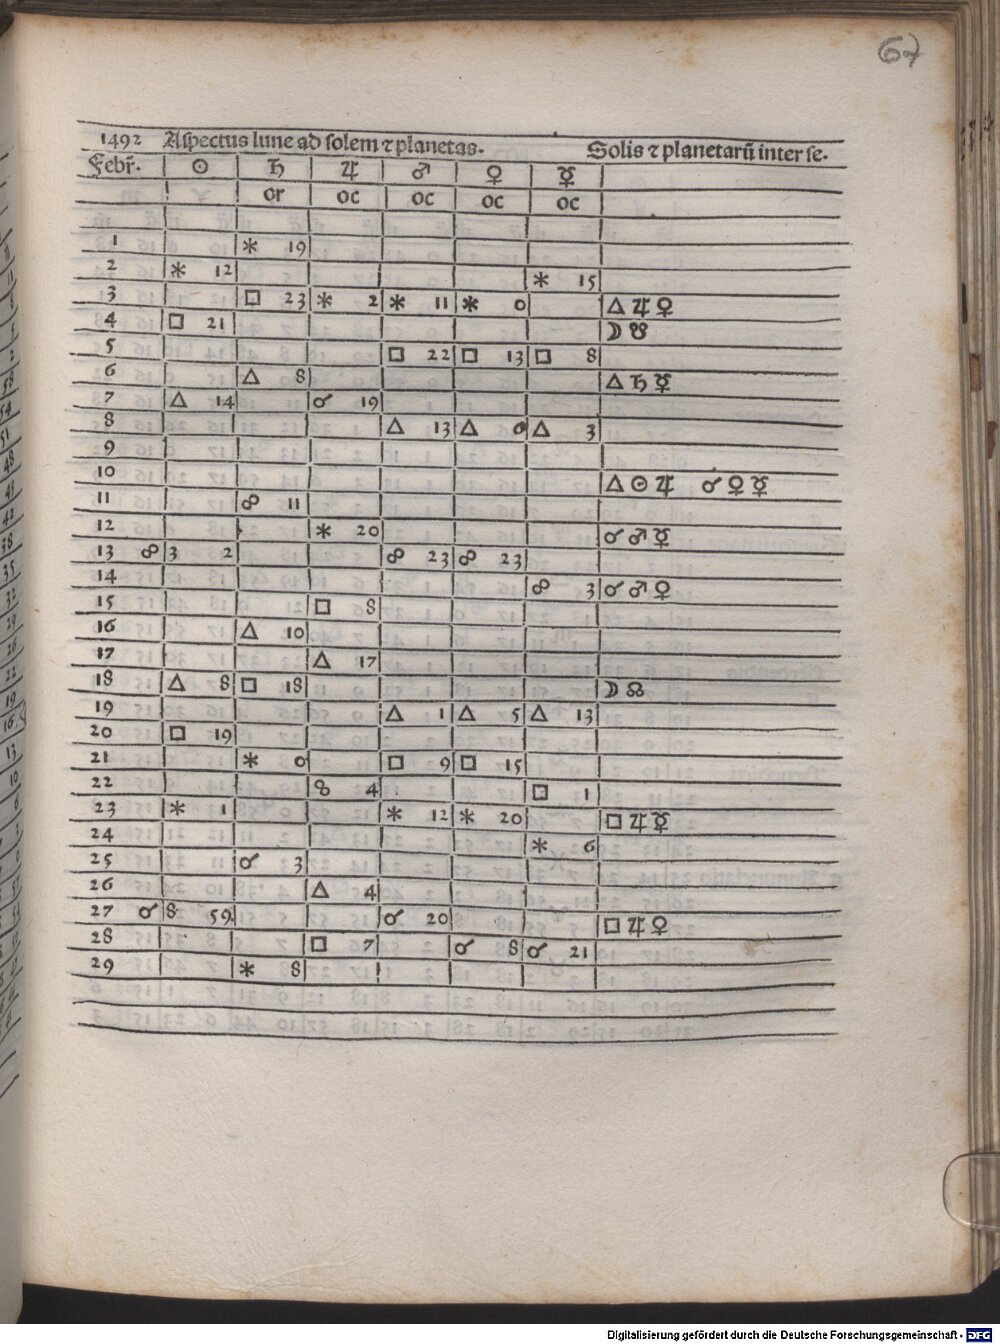 67
1492 Aſpectus lune ad ſolem ⁊ planetas. Solis ⁊ planetarũ inter ſe.
Febr̃. ☉ ♄ ♃ ♂ ♀ ☿
or oc oc oc oc
1 ⚹ 19
2 ⚹ 12 ⚹ 15
3 □ 23 ⚹ 2 ⚹ 11 ⚹ 0 △ ♃ ♀
4 □ 21 ☽ ☋
5 □ 22 □ 13 □ 8
6 △ 8 △ ♄ ☿
7 △ 14 ☌ 19
8 △ 13 △ 0 △ 3
9
10 △ ☉ ♃ ☌ ♀ ☿
11 ☍ 11
12 ⚹ 20 ☌ ♂ ☿
13 ☍ 3 2 ☍ 23 ☍ 23
14 ☍ 3 ☌ ♂ ♀
15 □ 8
16 △ 10
17 △ 17
18 △ 8 □ 18 ☽ ☊
19 △ 1 △ 5 △ 13
20 □ 19
21 ⚹ 0 □ 9 □ 15
22 ☍ 4 □ 1
23 ⚹ 1 ⚹ 12 ⚹ 20 □ ♃ ☿
24 ⚹ 6
25 ☌ 3
26 △ 4
27 ☌ 8 59 ☌ 20 □ ♃ ♀
28 □ 7 ☌ 8 ☌ 21
29 ⚹ 8
Digitalisierung gefördert durch die Deutsche Forschungsgemeinschaft - DFG